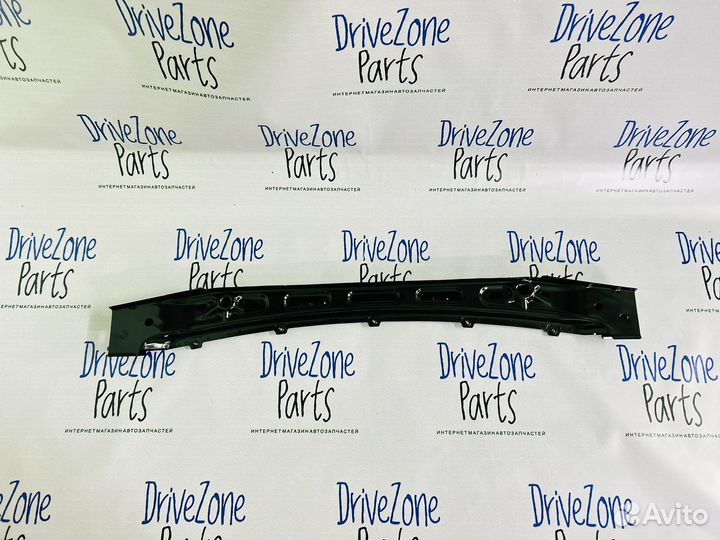 DriveZone
Parts
ИНТЕРНЕТМАГАЗИНАВТОЗАПЧАСТЕЙ
DriveZone
Parts
ИНТЕРНЕТМАГАЗИНАВТОЗАПЧАСТЕЙ
DriveZone
Parts
ИНТЕРНЕТМАГАЗИНАВТОЗАПЧАСТЕЙ
DriveZone
Parts
ИНТЕРНЕТМАГАЗИНАВТОЗАПЧАСТЕЙ
DriveZone
Parts
ИНТЕРНЕТМАГАЗИНАВТОЗАПЧАСТЕЙ
DriveZone
Parts
ИНТЕРНЕТМАГАЗИНАВТОЗАПЧАСТЕЙ
DriveZone
Parts
ИНТЕРНЕТМАГАЗИНАВТОЗАПЧАСТЕЙ
DriveZone
Parts
ИНТЕРНЕТМАГАЗИНАВТОЗАПЧАСТЕЙ
DriveZone
Parts
DriveZone
Parts
DriveZone
Parts
DriveZone
Parts
DriveZone
Parts
ИНТЕРНЕТМАГАЗИНАВТОЗАПЧАСТЕЙ
DriveZone
Parts
ИНТЕРНЕТМАГАЗИНАВТОЗАПЧАСТЕЙ
DriveZone
Parts
ИНТЕРНЕТМАГАЗИНАВТОЗАПЧАСТЕЙ
DriveZone
Parts
DriveZone
Parts
DriveZone
Parts
DriveZone
Parts
Avito